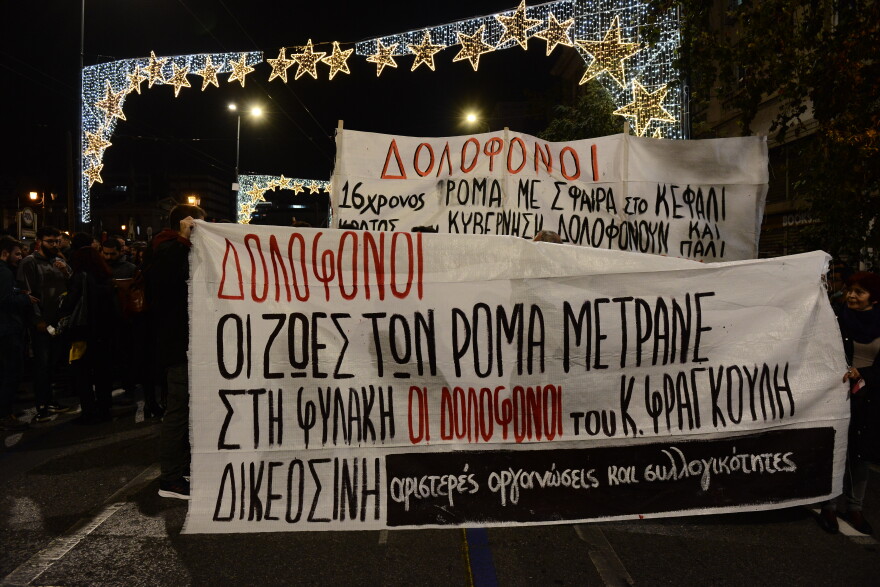 ΔΟΛΟΦΟΝΟΙ
16χρονος ΡΟΜΑ ΜΕ ΣΦΑΙΡΑ ΣΤΟ ΚΕΦΑΛΙ
ΚΥΒΕΡΝΗΣΗ ΔΟΛΟΦΟΝΟΥΝ ΚΑΙ
ΠΑΛΙ
BOOKS
ΔΟΛΟΦΟΝΟΙ
ΟΙ ΖΩΕΣ ΤΩΝ ΡΟΜΑ ΜΕΤΡΑΝΕ
ΣΤΗ ΦΥΛΑΚΗ ΟΙ ΔΟΛΟΦΟΝΟΙ του Κ. ΦΡΑΓΚΟΥΛΗ
ΔΙΚΕΟΣΙΝΗ αριστερές οργανώσεις και συλλογικότητες